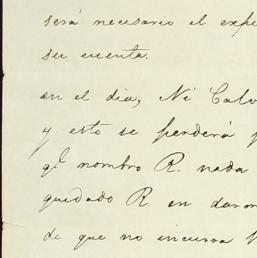 será necesario el expe
su cuenta.
en el dia, Ni Calv
y esto se perderá p
ql nombro R. nada
quedado R en daron
de que no incurra V